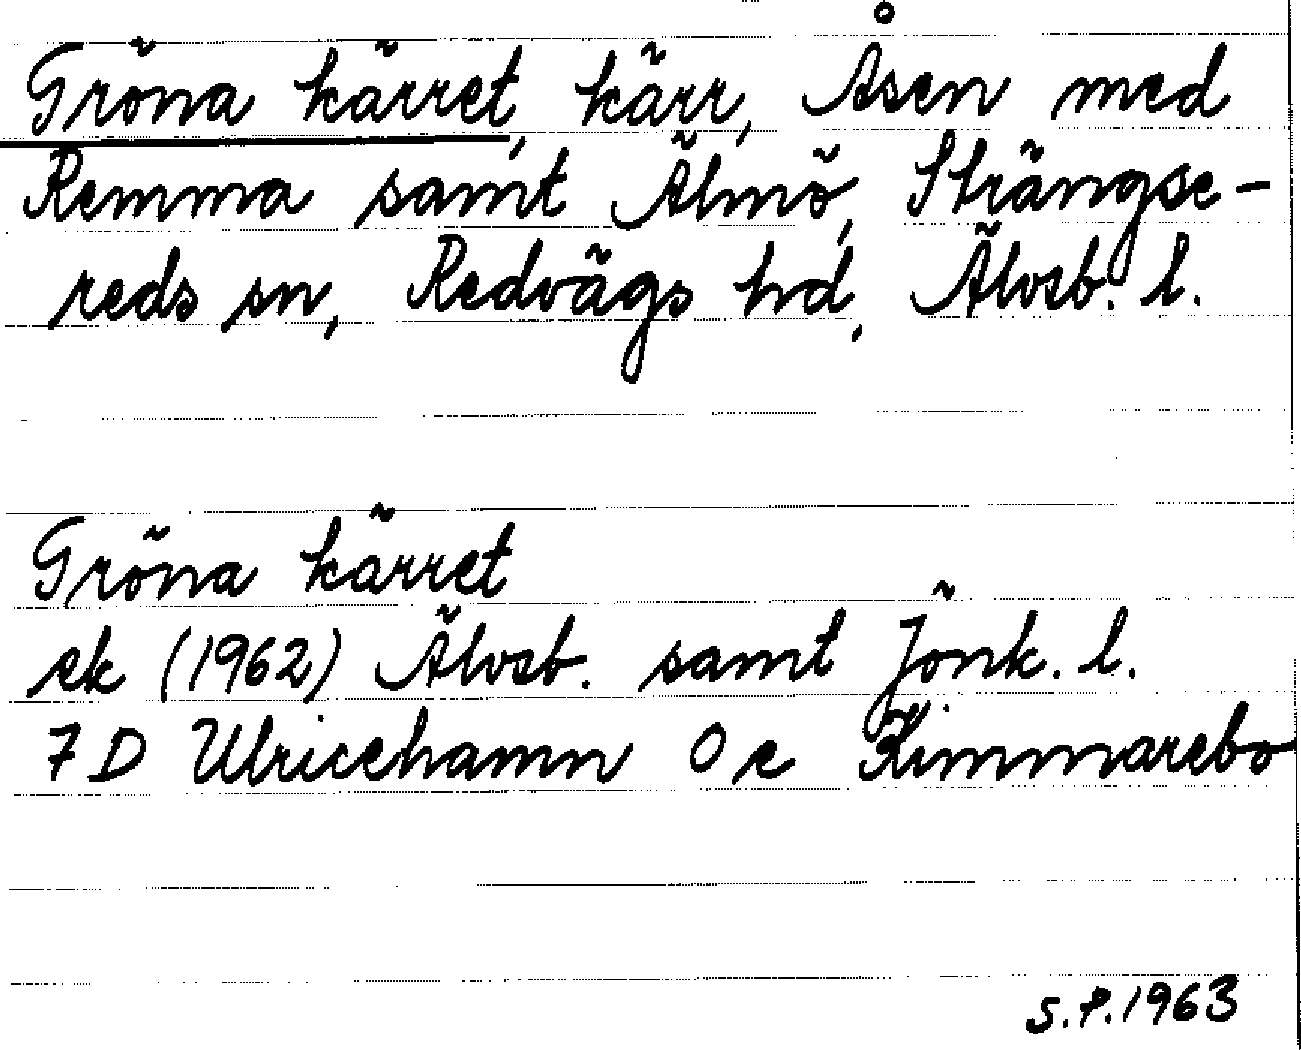 Gröna kärret, kärr, Åsen med
Remma samt Älmö, Strängse-
reds sn, Redvägs hd, Älvsb. l.
Gröna kärret
ek (1962) Älvsb. samt Jönk. l.
7 D Ulricehamn 0 e Kimmarebo
S.P. 1963